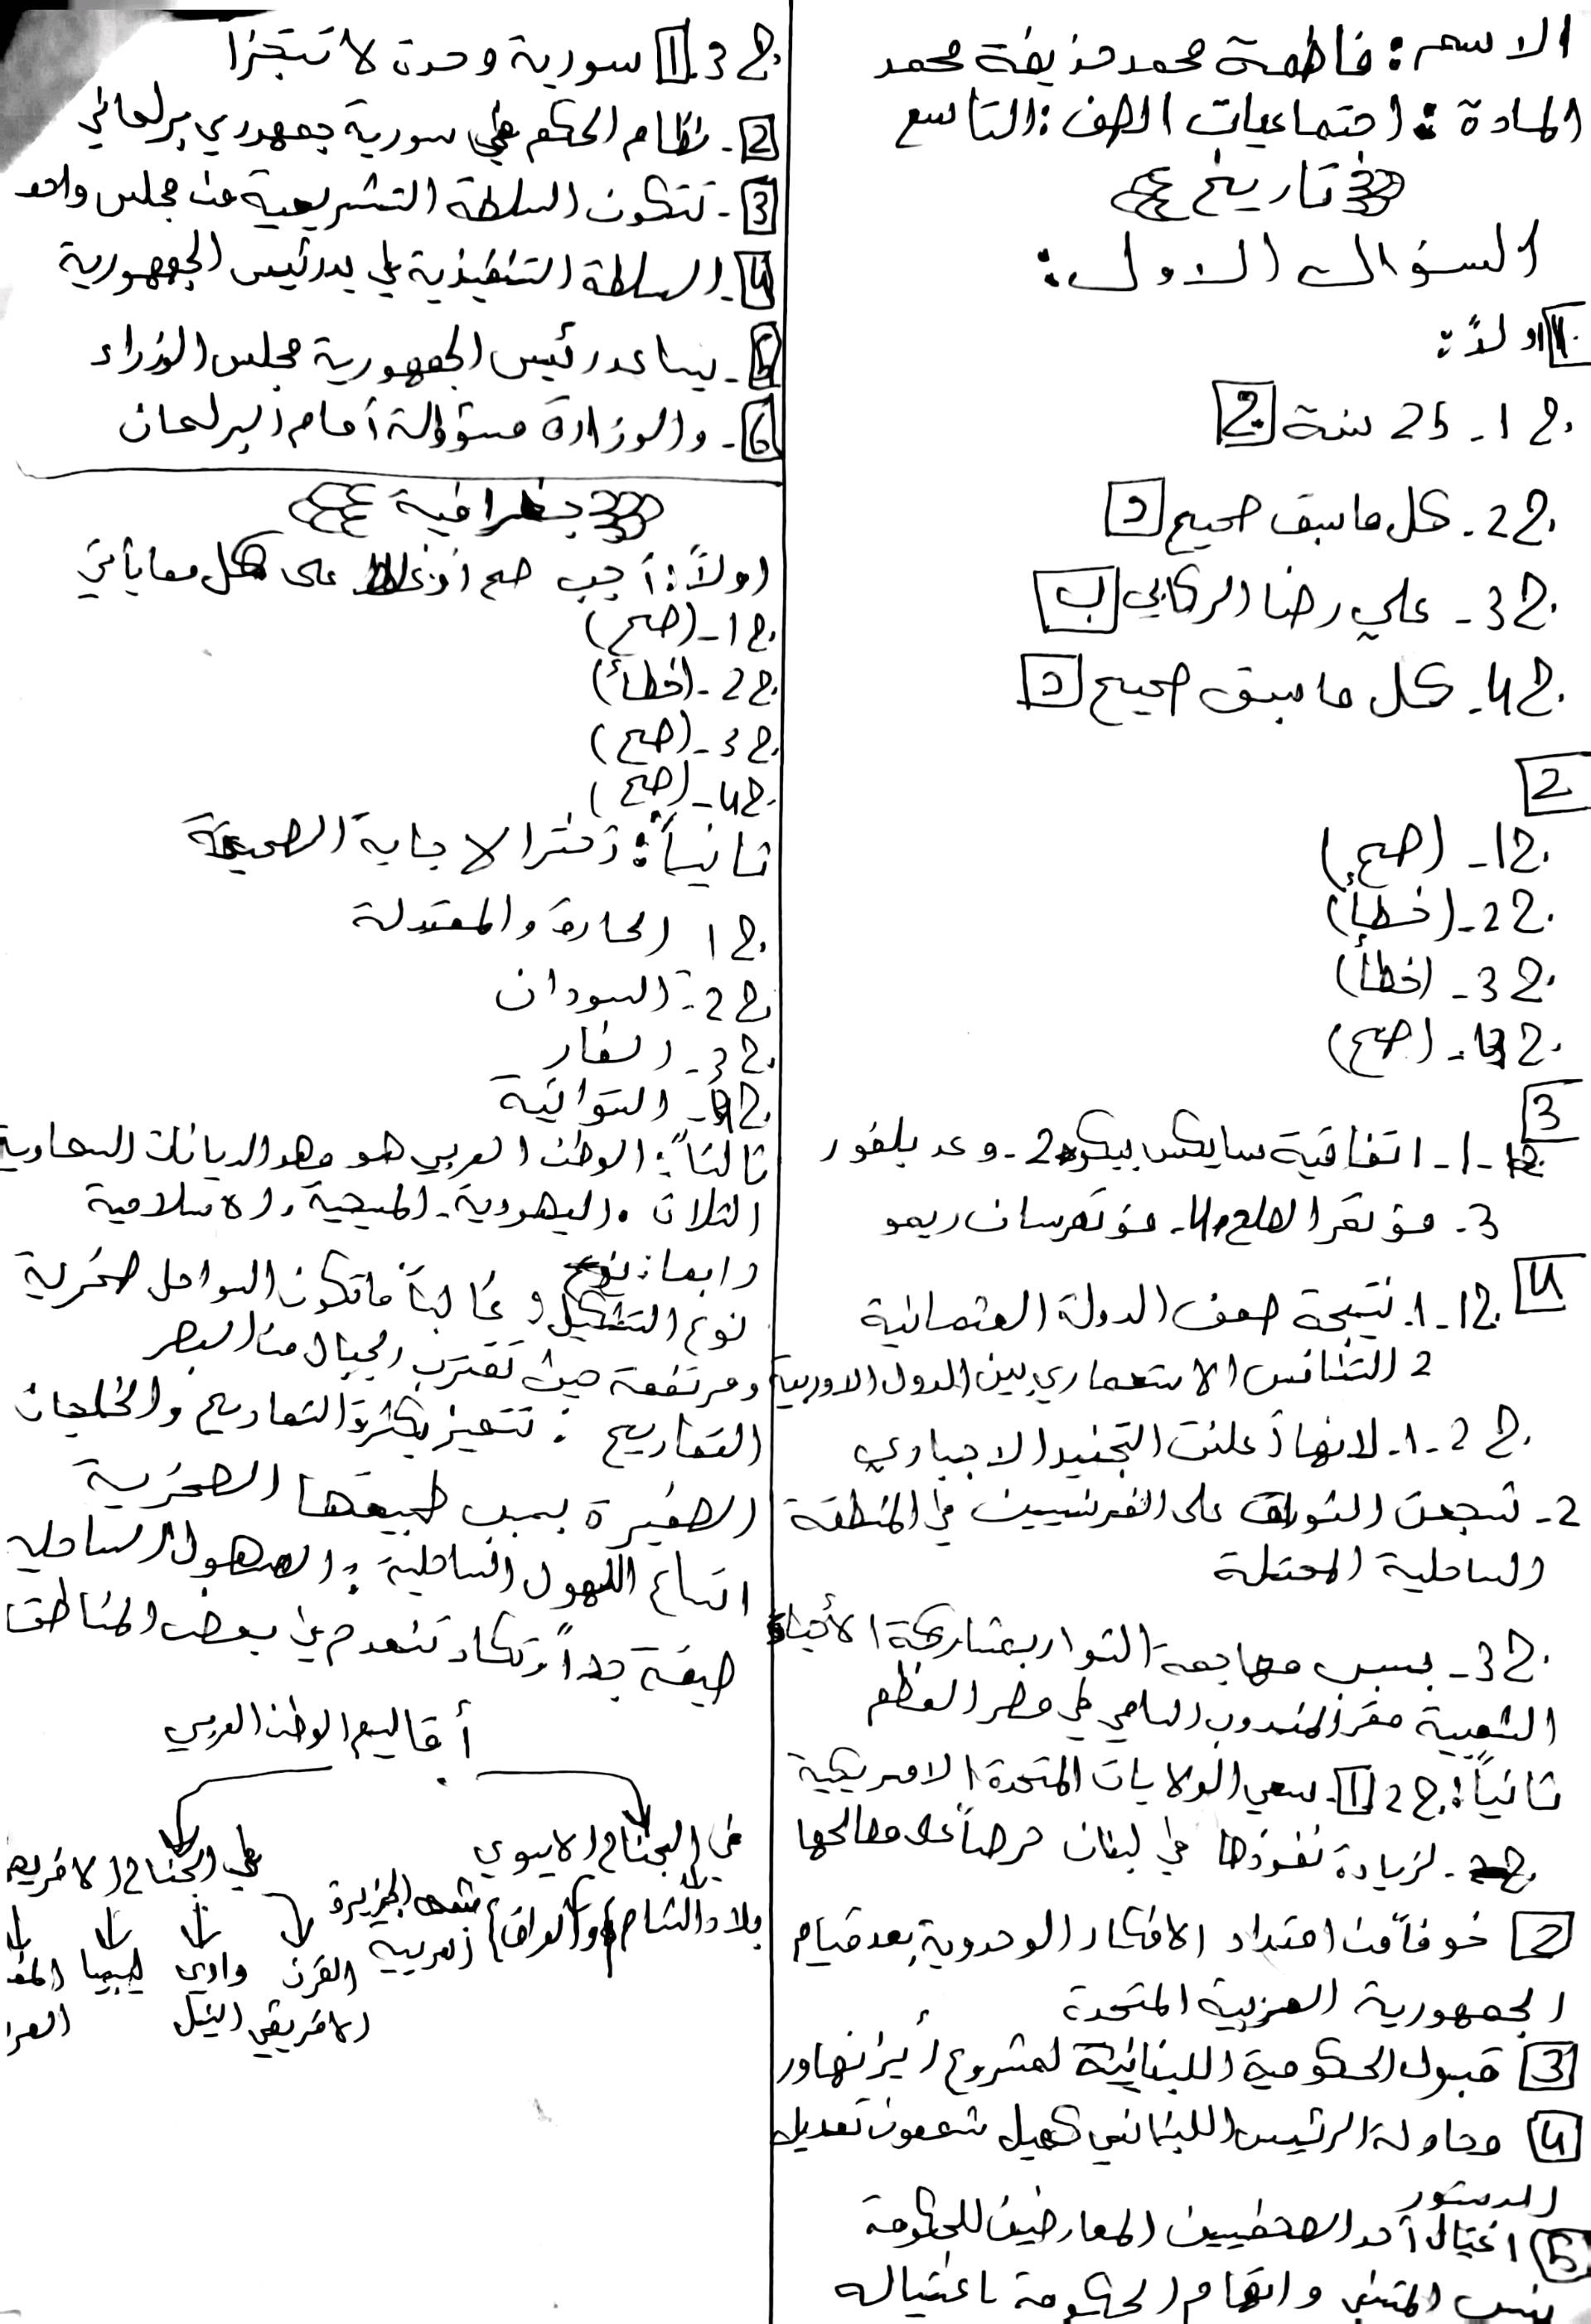 الاسم : فاطمة محمد حذيفة محمد
المادة : اجتماعيات الصف : التاسع
تاريخ
السؤال الاول :
1 اولاً :
ج1- 25 سنة ج
ج2- كل ما سبق صحيح د
ج3- علي رضا الركابي ب
ج4- كل ما سبق صحيح د
2
ج1- (صح)
ج2- (خطأ)
ج3- (خطأ)
ج4- (صح)
3
1- اتفاقية سايكس بيكو 2- وعد بلفور
3- مؤتمر الصلح 4- مؤتمر سان ريمو
4
ج1- 1- نتيجة ضعف الدولة العثمانية
2 التنافس الاستعماري بين الدول الاوربية
ج2- 1- لانها أعلنت التجنيد الاجباري
2- شجعت الثورات على الفرنسيين في المنطقة
الساحلية المحتلة
ج3- بسبب مهاجمة الثوار بمشاركة الأحياء
الشعبية مقر المندوب السامي في قصر العظم
ثانياً : ج2 1- سعي الولايات المتحدة الامريكية
لزيادة نفوذها في لبنان حرصاً على مصالحها
2 خوفاً من امتداد الافكار الوحدوية بعد قيام
الجمهورية العربية المتحدة
3 قبول الحكومة اللبنانية لمشروع أيزنهاور
4 محاولة الرئيس اللبناني كميل شمعون تعديل
الدستور
5 اغتيال أحد الصحفيين المعارضين للحكومة
نسيب المتني واتهام الحكومة باغتياله
ج3 1 سورية وحدة لا تتجزأ
2- نظام الحكم في سورية جمهوري برلماني
3- تتكون السلطة التشريعية من مجلس واحد
4- السلطة التنفيذية في يد رئيس الجمهورية
5- يساعد رئيس الجمهورية مجلس الوزراء
6- والوزارة مسؤولة أمام البرلمان
جغرافية
اولاً : أجب صح أو غلط على كل مما يأتي
ج1- (صح)
ج2- (خطأ)
ج3- (صح)
ج4- (صح)
ثانياً : اختر الاجابة الصحيحة
ج1 الحارة والمعتدلة
ج2- السودان
ج3- الغار
ج4- الستوائية
ثالثاً : الوطن العربي هو مهد الديانات السماوية
الثلاث . اليهودية - المسيحية , الاسلامية
رابعاً :
نوع التشكيل و غالباً ما تكون السواحل صخرية
ومرتفعة حيث تقترب الجبال من البحر
التعاريج : تتميز بكثرة التعاريج والخلجان
الصغيرة بسبب طبيعتها الصخرية
اتساع السهول الساحلية : السهول الساحلية
ضيقة جداً وتكاد تنعدم في بعض المناطق
أقاليم الوطن العربي
في الجناح الاسيوي
في الجناح الافريقي
بلاد الشام والعراق شبه الجزيرة
العربية
القرن وادي ليبيا
الافريقي النيل